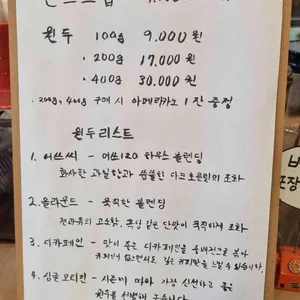 원두 100g 9.000원
· 200g 17.000원
· 400g 30.000원
· 200g, 400g 구매 시 아메리카노 1잔 증정
원두리스트
1. 어쓰씨 - 어쓰120 하우스 블렌딩
화사한 과일향과 쌉쌀한 다크초콜릿의 조화
2. 올라운드 - 묵직한 블렌딩
견과류의 고소함, 흑당 같은 단맛이 묵직하게 조화
3. 디카페인 - 맛이 좋은 디카페인을
카페인이 없으면서도 깊은 커피맛을 느낄 수 있습니다.
4. 싱글 오리진 - 시즌에 따라 가장 신선하고 좋은
원두를 선별해